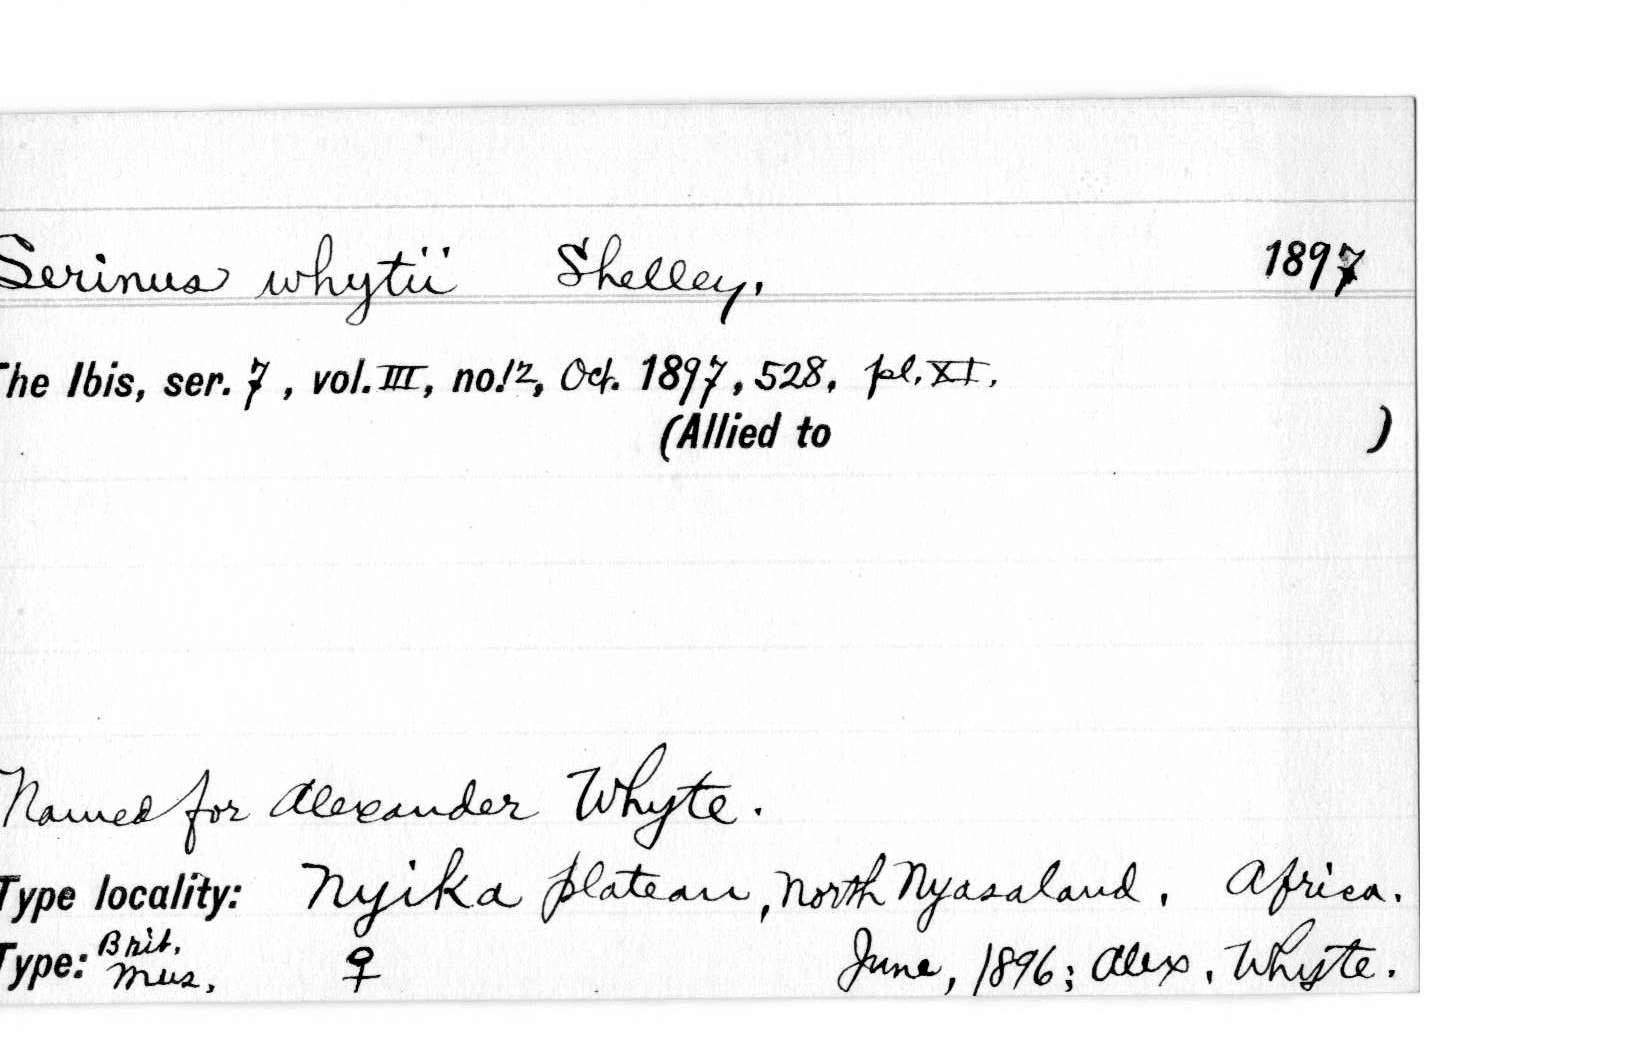 Serinus whytii Shelley. 1897
The Ibis, ser. 7, vol. III, no. 12, Oct. 1897, 528, pl. XI.
(Allied to )
Named for Alexander Whyte.
Type locality: Nyika plateau, North Nyasaland. Africa.
Type: Brit. Mus. ♀ June, 1896; Alex. Whyte.